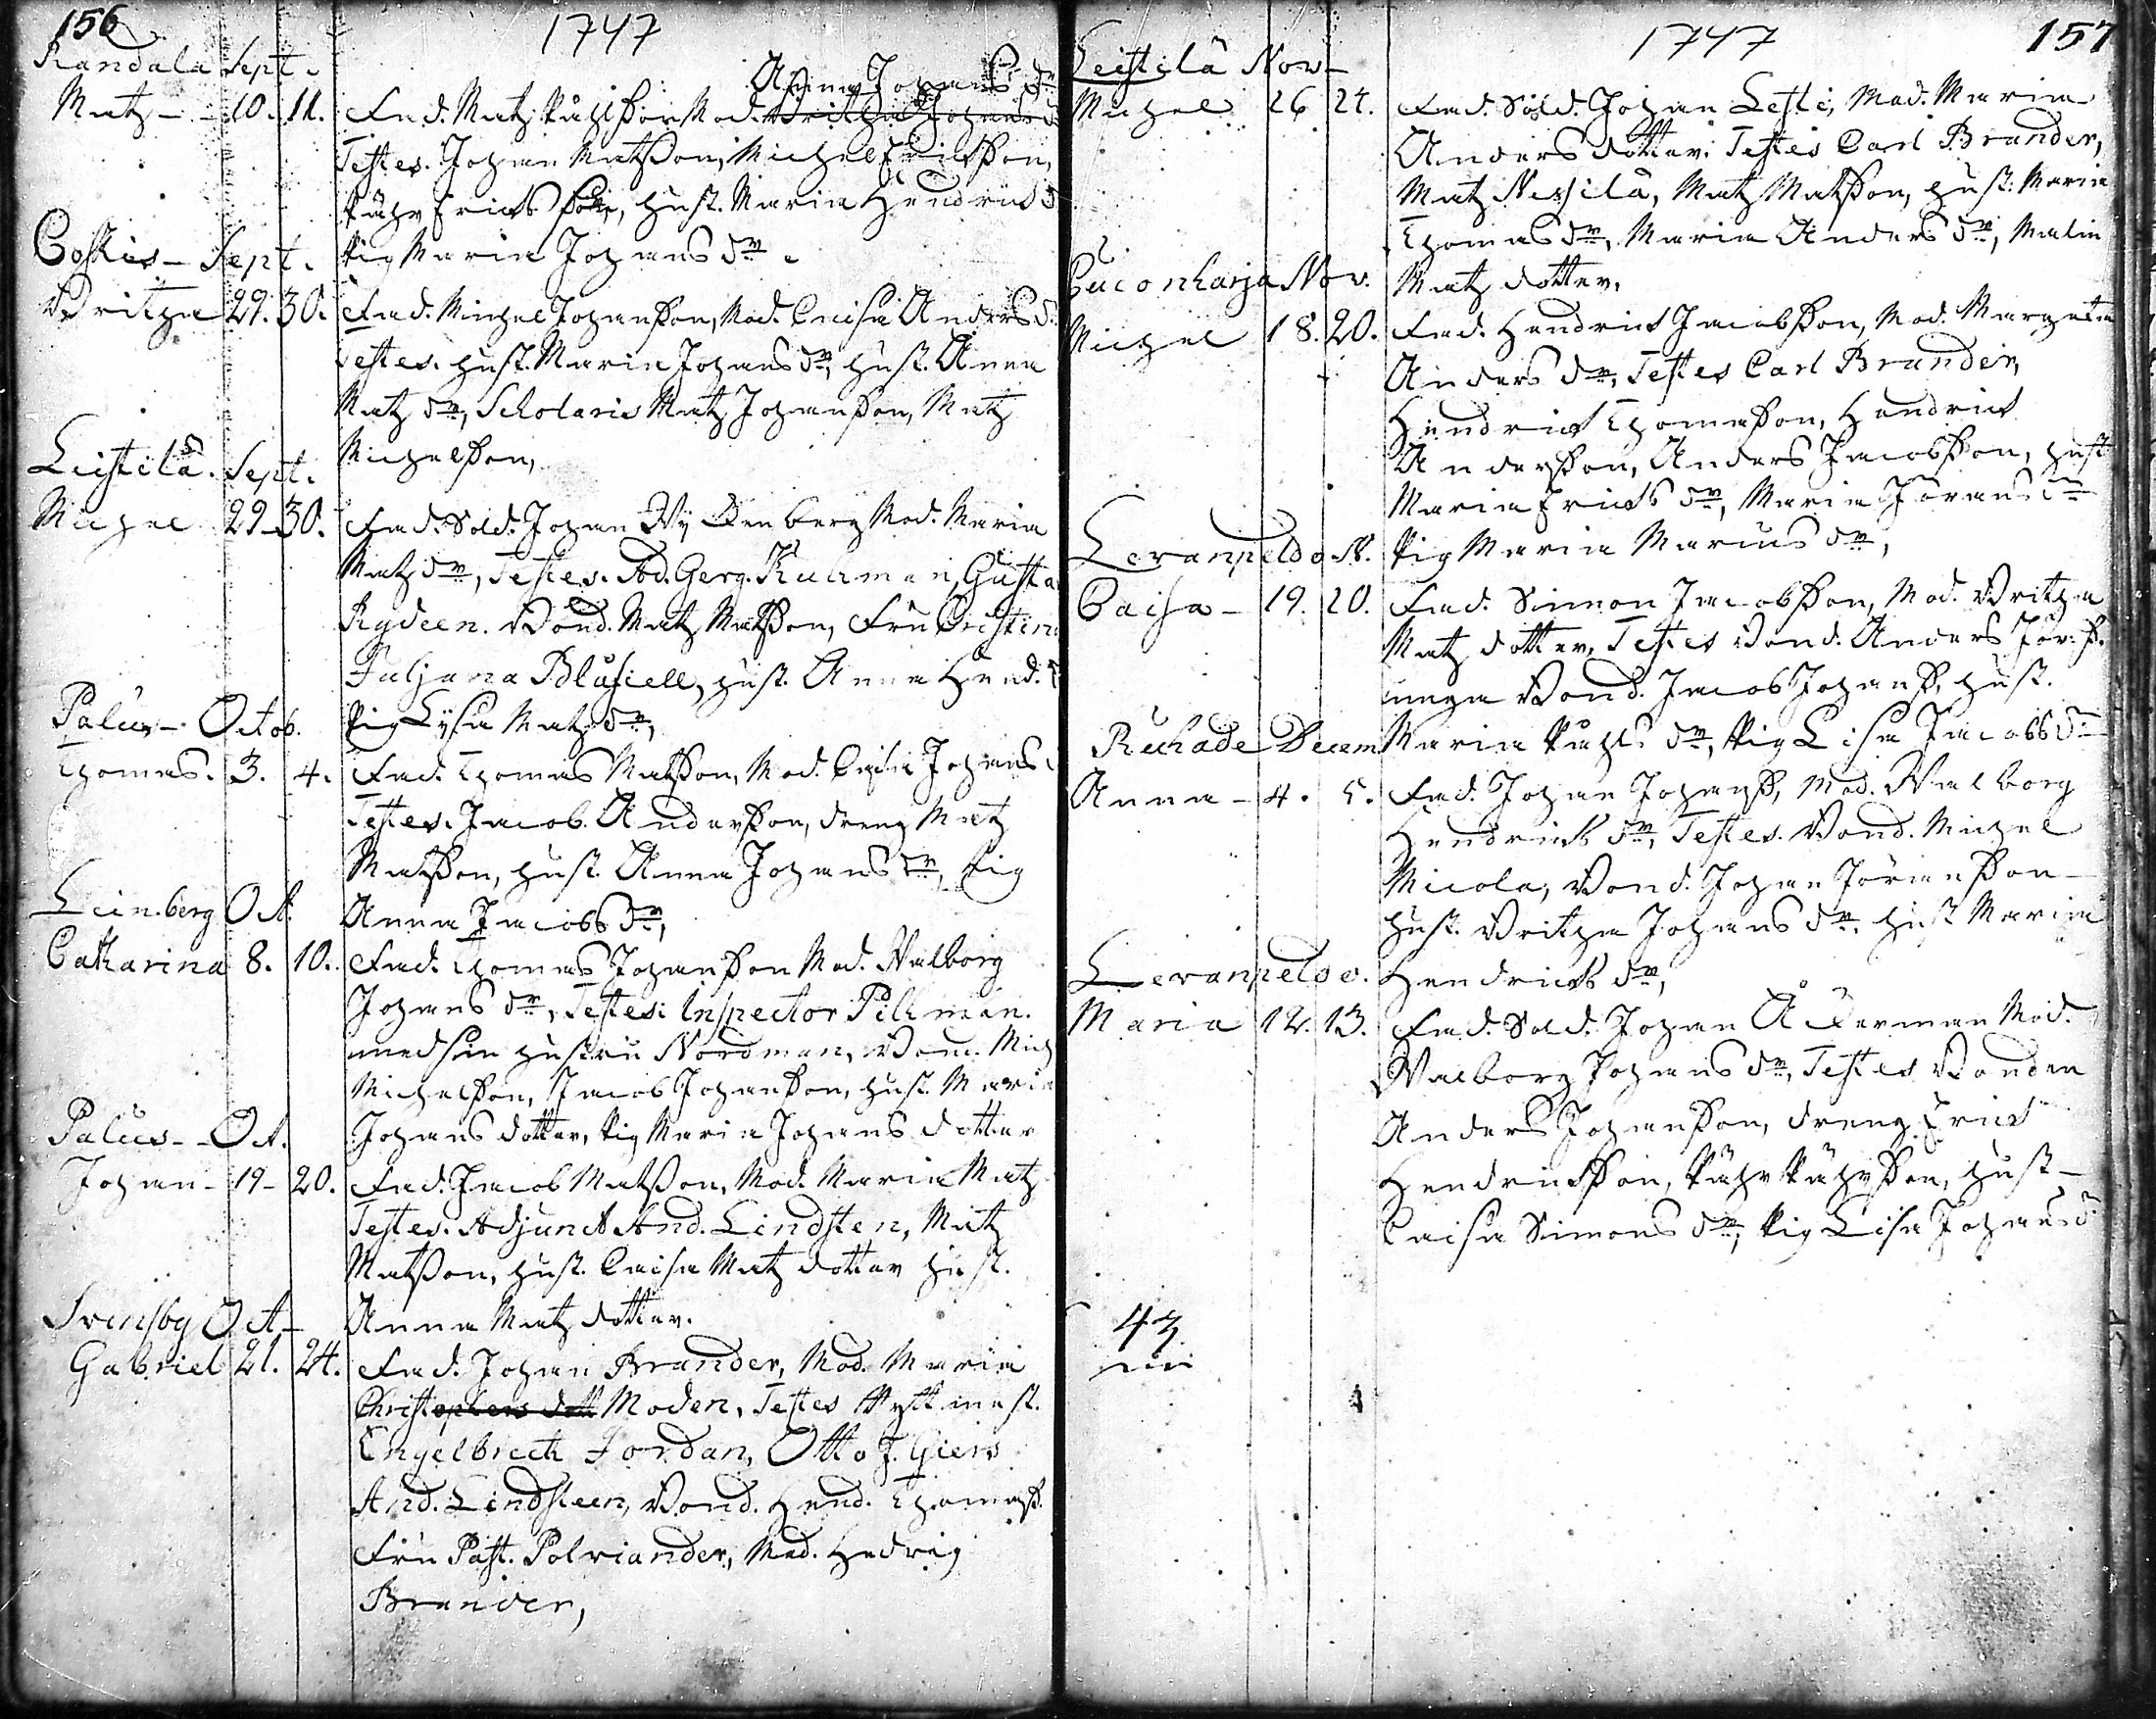 156
1747
Randala Sept.
Anna Johans dr
Matz - 10. 11. Fad. Matz Påhlsson Mod. Britha Johans d
Testes. Johan Matzson, Michel Ericsson,
Påhr Erics son, hust. Maria Hendrics d
Pig Maria Johans dr.
Coskis - Sept.
Britha 29. 30. Fad. Michel Johansson, Mod. Caisa Anders d.
Testes. hust. Maria Johans dr, hust. Anna
Matz dr, Scholaris Matz Johansson, Matz
Michelsson,
Leistilä. Sept.
Michel 29 30. Fad. Sold. Johan Wykenberg Mod. Maria
Matz dr, Testes. Ad. Gerg. Kuhman, Gusta
Rydeen. Bond. Matz Matsson, Fru Christina
Juljana Blåfiell, hust. Anna Hend. d
Pig Lysa Matz dr,
Palus - Octob.
Thomas. 3. 4. Fad. Thomas Matsson, Mod. Caisa Johans
Testes. Jacob. Andersson, dreng Matz
Matsson, hust. Anna Johans dr, Pig
Anna Jacobs dr,
Leinberg Oct.
Catharina 8. 10. Fad. Thomas Johansson Mod. Walborg
Johans dr, Testes: Inspector Pillman.
med sin hustru Nordman, Bond. Mich
Michelsson, Jacob Johansson, hust. Maria
Johans dotter, Pig Maria Johans dotter
Palus - Oct.
Johan - 19 - 20. Fad. Jacob Matsson, Mod. Maria Matz
Testes. Adjunct And. Lindsten, Matz
Matsson, hust. Caisa Matz dotter hust.
Anna Matz dotter.
Svensby Oct -
Gabriel 21. 24. Fad. Johan Brander, Mod. Maria
Christophers dott Moden, Testes Rytt mest.
Engelbrect Jordan, Otto J. Giers
And. Lindsteen, Bond. Hend. Thomass.
Fru Past. Polviander, Mad. Hedvig
Brander,
1747
157
Leistilä Nov -
Michel 26 27. Fad. Sold. Johan Leste, Mod. Maria
Anders dotter. Testes Carl Brander,
Matz Nessilä, Matz Matsson, hust. Maria
Thomas dr, Maria Anders dr, Malin
Matz dotter.
Cuconharja Nov.
Michel 18. 20. Fad. Hendric Jacobsson, Mod. Margeta
Anders dr, Testes Carl Brander,
Hendric Thomasson, Hendric
Andersson, Anders Jacobsson, hust
Maria Erics dr, Maria Jörans dr
Pig Maria Marcus dr,
Levanpeldo N.
Caisa - 19. 20. Fad. Simon Jacobsson, Mod. Britha
Matz dotter, Testes Bond. Anders Jör. s.
unga Bond. Jacob Johans s, hust.
Maria Påhls dr, Pig Lisa Jacobs d
Ruhade Decem
Anna - 4. 5. Fad. Johan Johanss, Mod. Walborg
Hendrics dr, Testes. Bond. Michel
Micola, Bond. Johan Jöransson -
hust. Britha Johans dr. hust Maria
Hendrics dr,
Levanpeldo.
Maria 12. 13. Fad. Sold. Johan Åckerman Mod.
Walborg Johans dr, Testes Bonden
Anders Johansson, dreng Eric
Hendricsson, Påhr Påhrsson, hust -
Caisa Simons dr, Pig Lisa Johans d
43